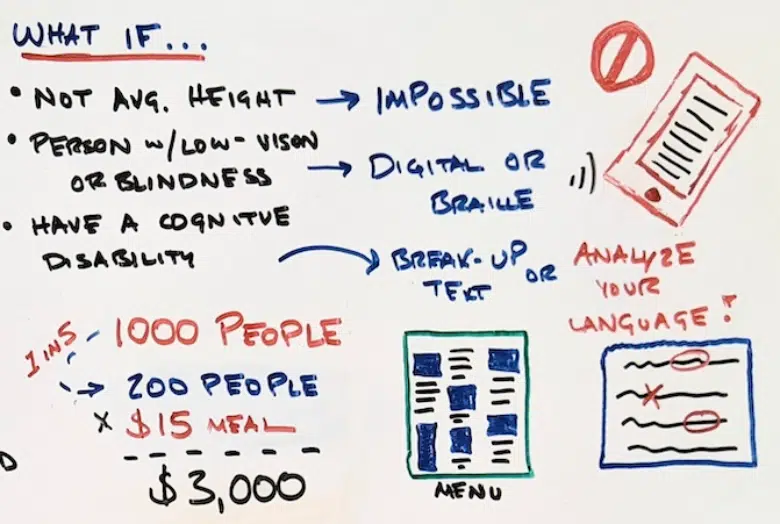 WHAT IF...
• NOT AVG. HEIGHT → IMPOSSIBLE
• PERSON W/LOW-VISON
OR BLINDNESS → DIGITAL OR
BRAILLE
• HAVE A COGNITVE
DISABILITY → BREAK-UP
TEXT OR
ANALYZE
YOUR
LANGUAGE!
1 IN 5
1000 PEOPLE
→ 200 PEOPLE
x $15 MEAL
$3,000
MENU